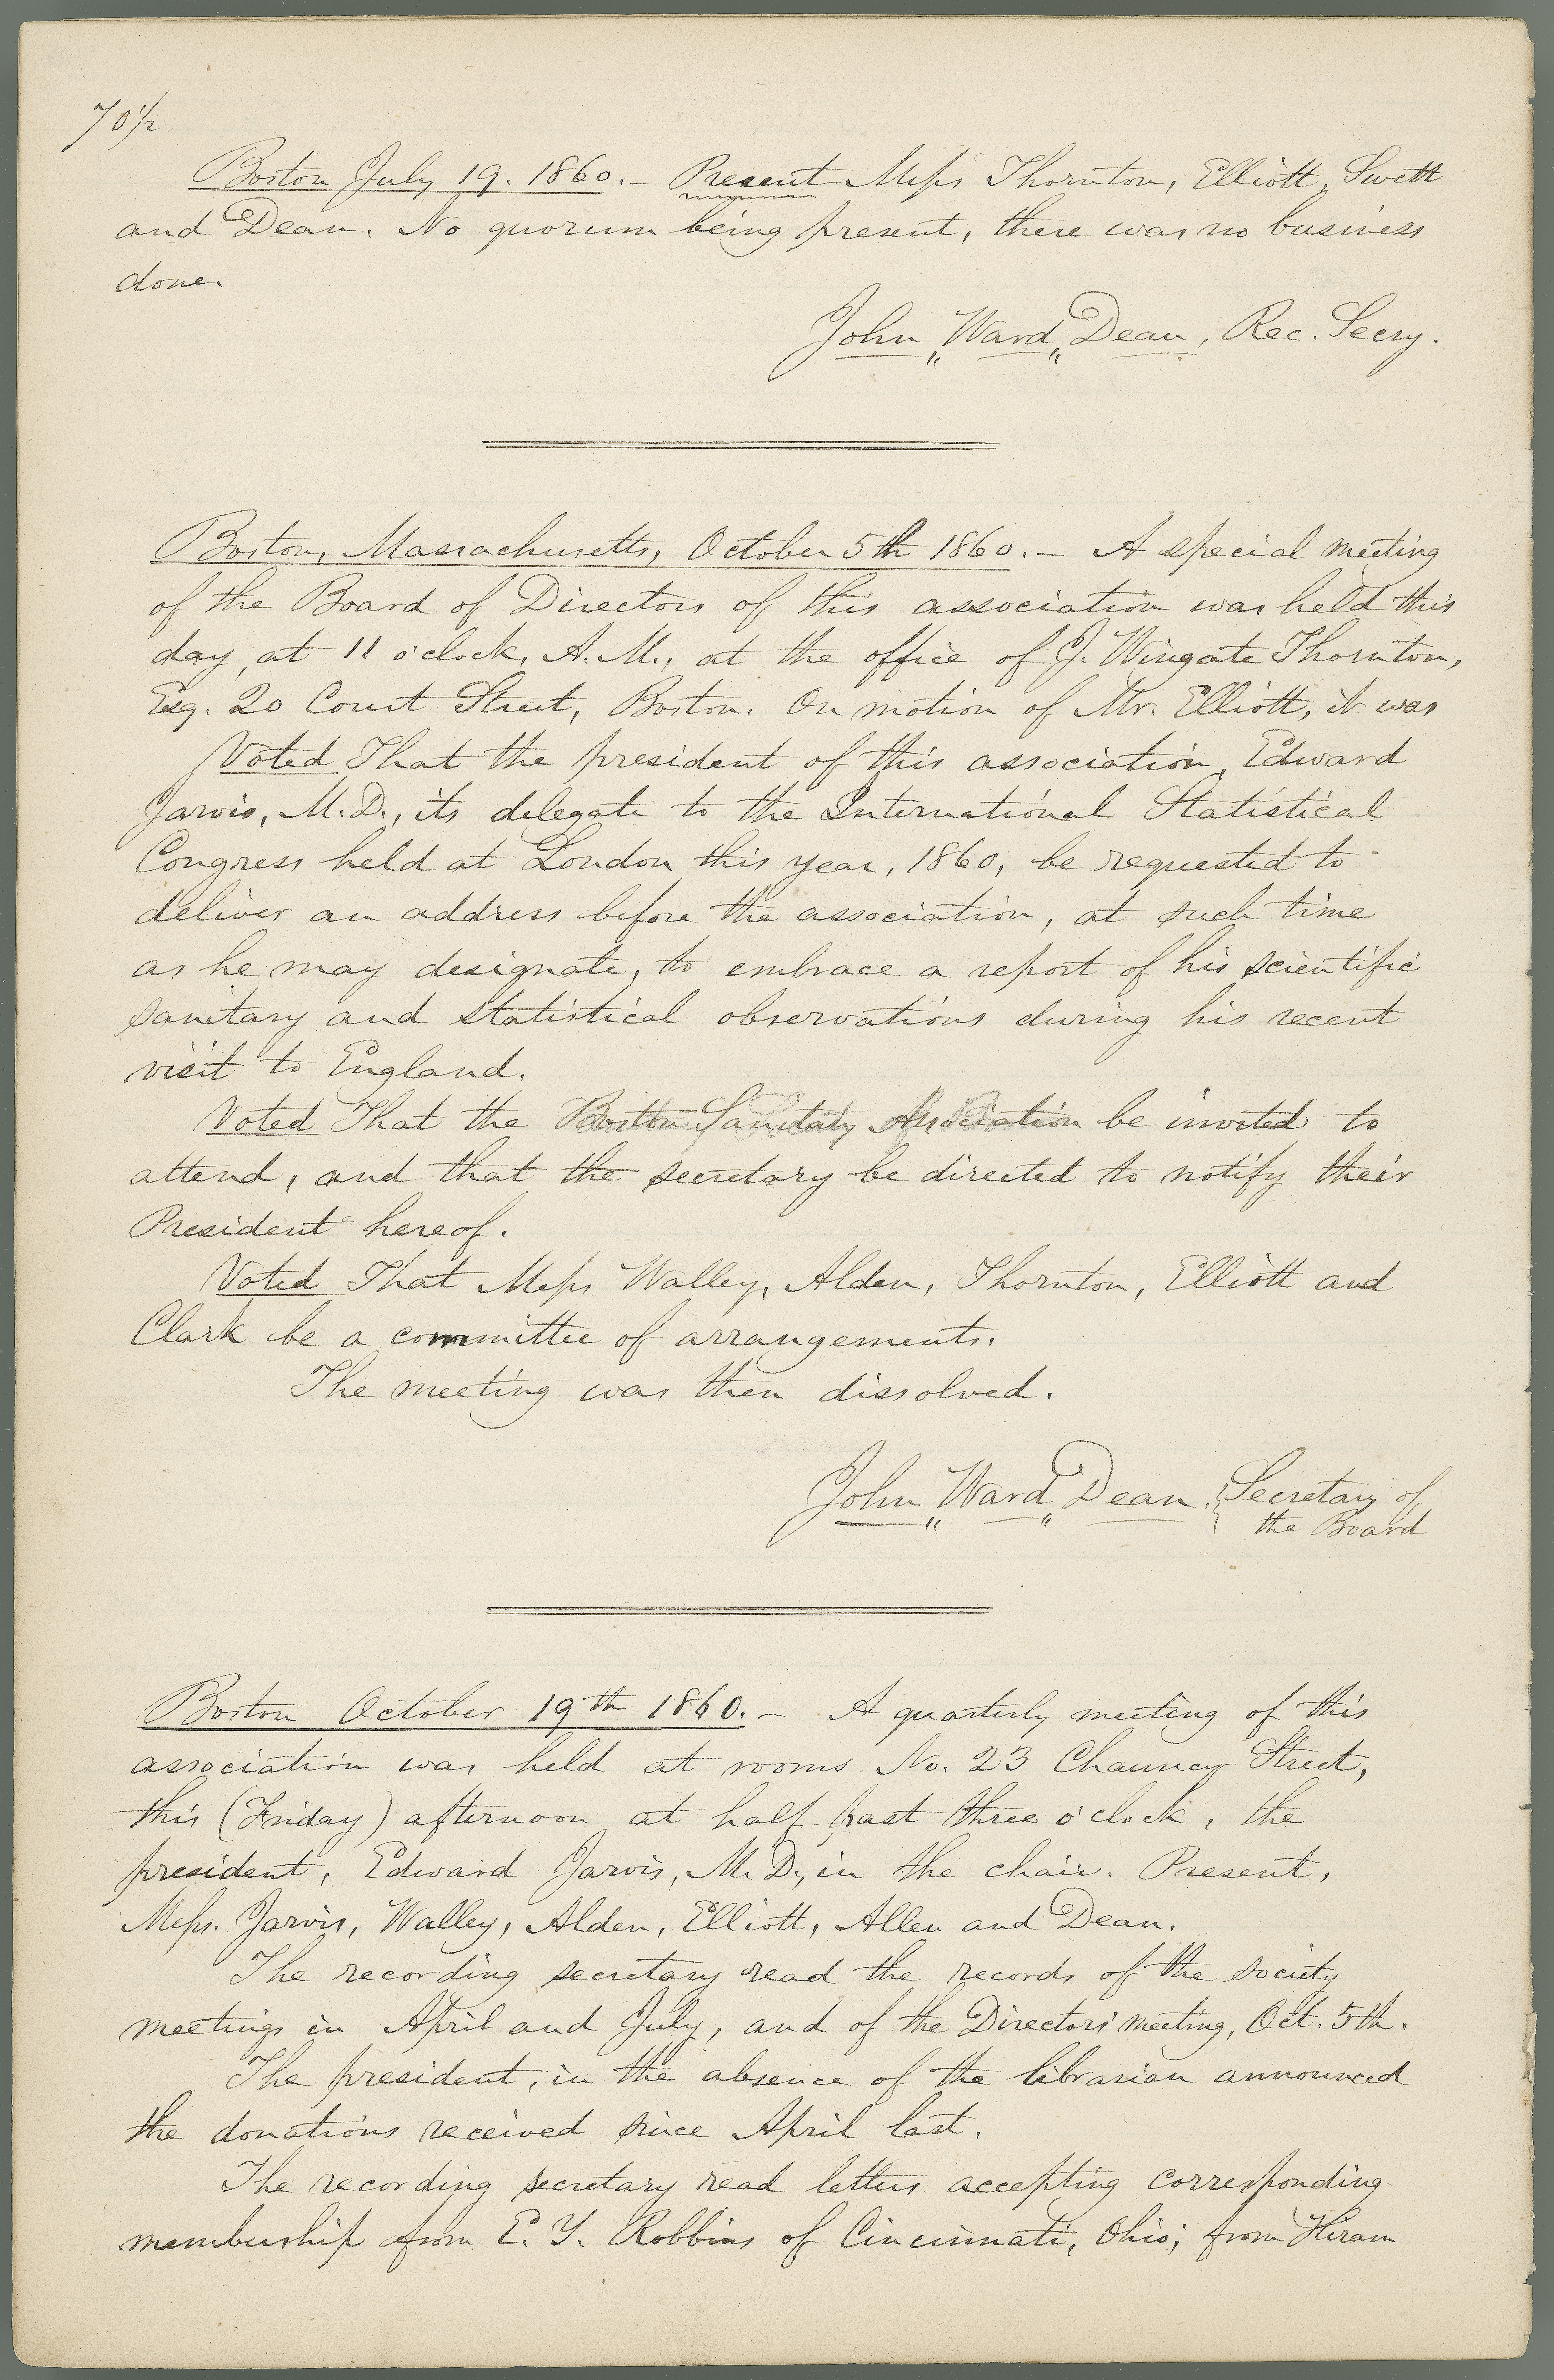 70 1/2
Boston July 19. 1860. — Present Messrs Thornton, Elliott, Swett
and Dean. No quorum being present, there was no business
done.
John Ward Dean, Rec. Secry.
Boston, Massachusetts, October 5th 1860. — A special meeting
of the Board of Directors of this association was held this
day, at 11 o'clock, A.M., at the office of J. Wingate Thornton,
Esq. 20 Court Street, Boston. On motion of Mr. Elliott, it was
Voted That the president of this association, Edward
Jarvis, M.D., its delegate to the International Statistical
Congress held at London this year, 1860, be requested to
deliver an address before the association, at such time
as he may designate, to embrace a report of his scientific
sanitary and statistical observations during his recent
visit to England.
Voted That the Boston Sanitary Association be invited to
attend, and that the secretary be directed to notify their
President hereof.
Voted That Messrs Walley, Alden, Thornton, Elliott and
Clark be a committee of arrangements.
The meeting was then dissolved.
John Ward Dean, Secretary of
the Board
Boston October 19th 1860. — A quarterly meeting of this
association was held at rooms No. 23 Chauncy Street,
this (Friday) afternoon at half past three o'clock, the
president, Edward Jarvis, M.D., in the chair. Present,
Messrs. Jarvis, Walley, Alden, Elliott, Allen and Dean.
The recording secretary read the records of the society
meetings in April and July, and of the Directors' meeting, Oct. 5th.
The president, in the absence of the librarian announced
the donations received since April last.
The recording secretary read letters accepting corresponding
membership from E. Y. Robbins of Cincinnati, Ohio; from Hiram